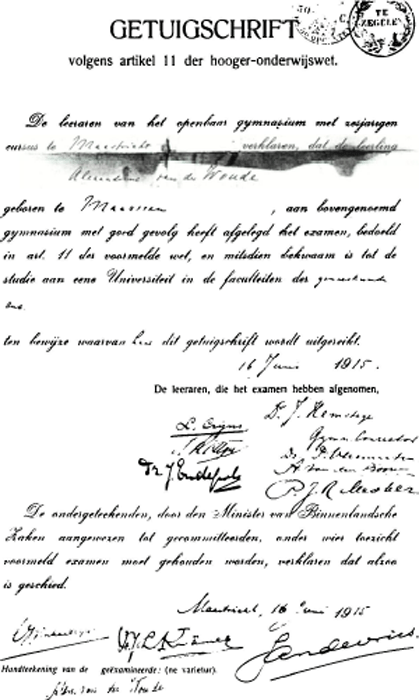 GETUIGSCHRIFT
TE
ZEGELEN
volgens artikel 11 der hooger-onderwijswet.
De leeraren van het openbaar gymnasium met zesjarigen
cursus te Maastricht verklaren, dat de leerling
van der Woude
geboren te , aan bovengenoemd
gymnasium met goed gevolg heeft afgelegd het examen, bedoeld
in art. 11 der voormelde wet, en mitsdien bekwaam is tot de
studie aan eene Universiteit in de faculteiten der geneeskunde
enz.
ten bewijze waarvan hem dit getuigschrift wordt uitgereikt.
16 Juni 1915.
De leeraren, die het examen hebben afgenomen,
Dr. J.
L.
Dr. J. Endepols
De ondergeteekenden, door den Minister van Binnenlandsche
Zaken aangewezen tot gecommitteerden, onder wier toezicht
voormeld examen moet gehouden worden, verklaren dat alzoo
is geschied.
Maastricht, 16 Juni 1915
Handteekening van de geëxamineerde: (ne varietur.)
van der Woude